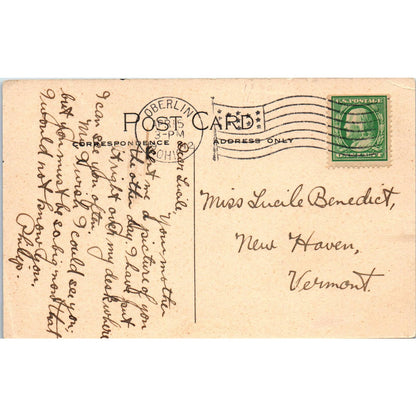 OBERLIN
3-PM
OHIO
POST CARD
CORRESPONDENCE
ADDRESS ONLY
U.S. POSTAGE
Dear Lucile, Your mother
sent me a picture of you
the other day. I have put
it right over my desk where
I can see you often.
My, I wish I could see you,
but you must be so big now that
I would not know you.
Philip.
Miss Lucile Benedict,
New Haven,
Vermont.